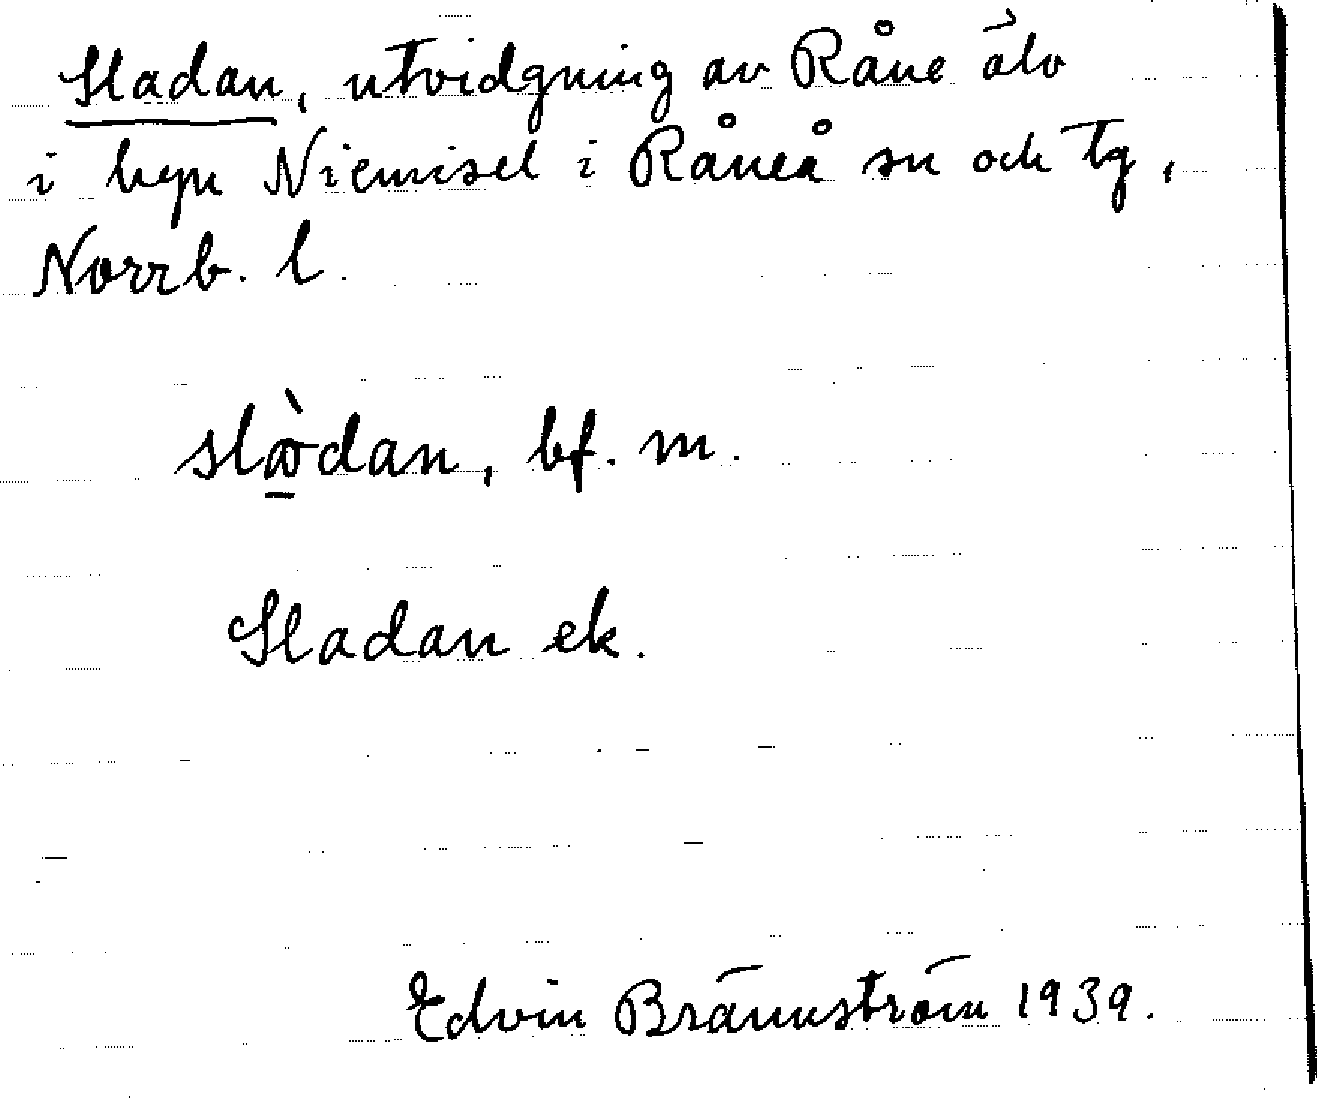 Sladan, utvidgning av Råne älv
i byn Niemisel i Råneå sn och tg,
Norrb. l.
bf. m.
Sladan ek.
Edvin Brännström 1939.